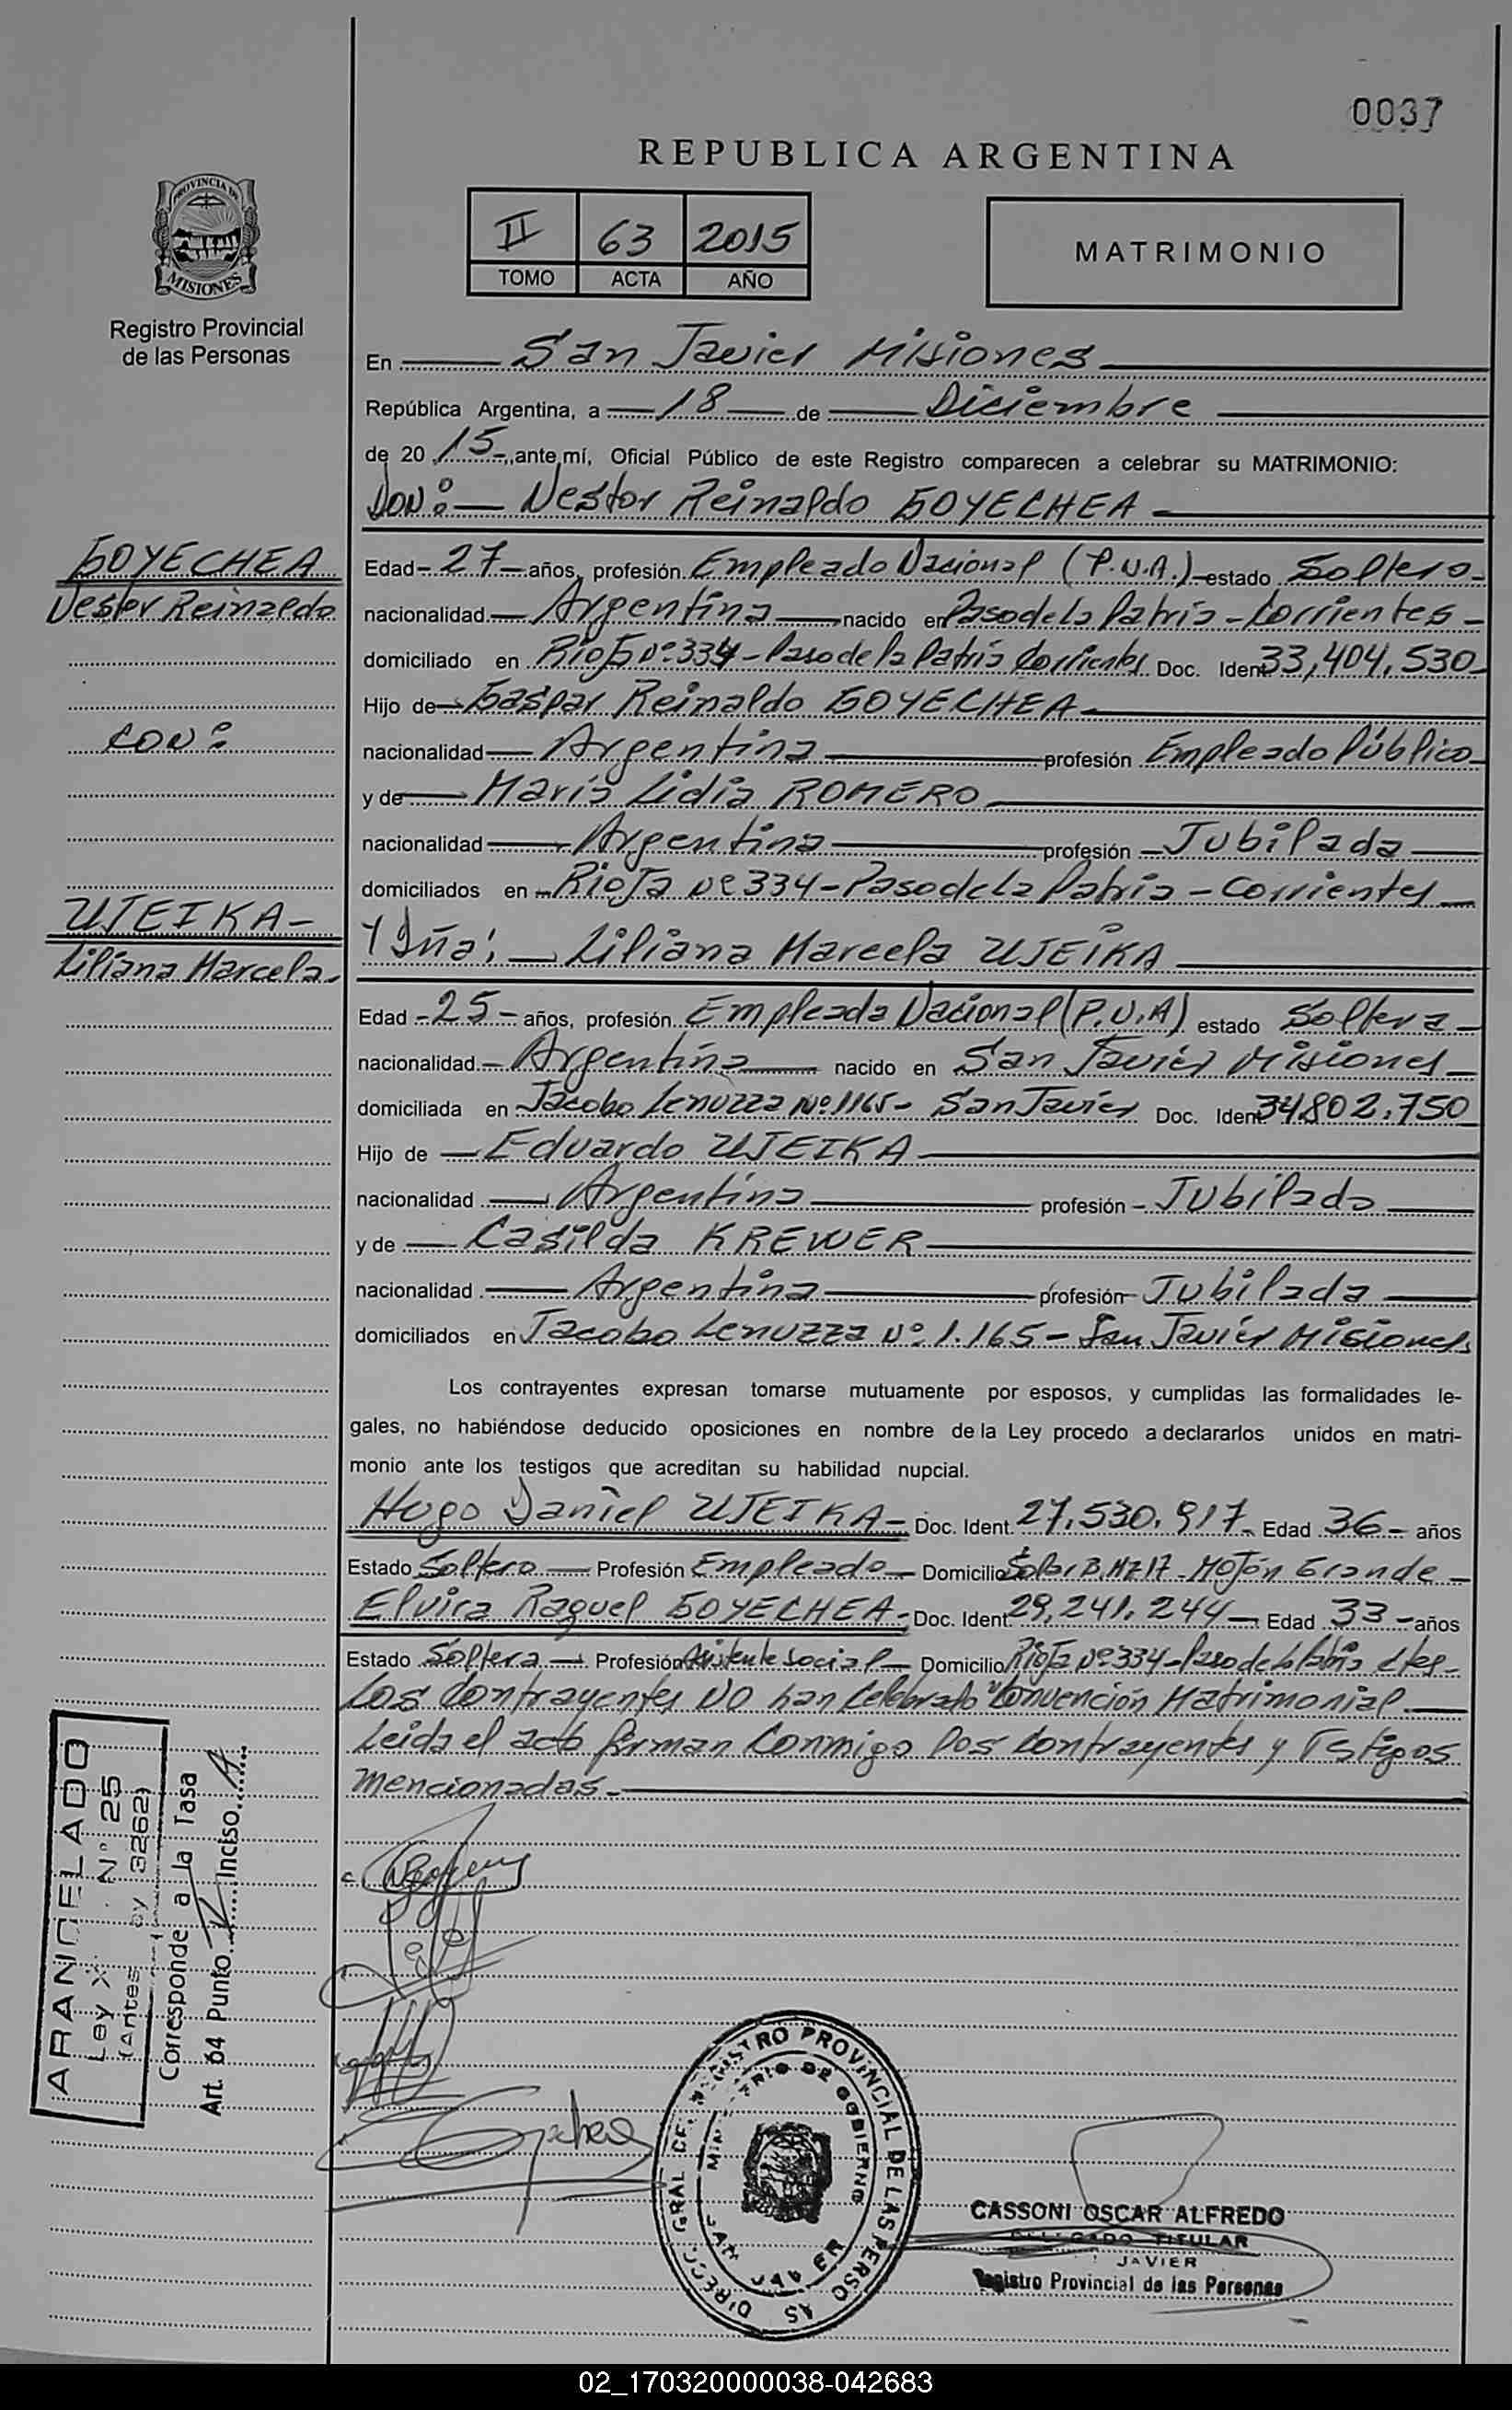 0037
REPUBLICA ARGENTINA
PROVINCIA DE
MISIONES
Registro Provincial
de las Personas
II 63 2015
TOMO ACTA AÑO
MATRIMONIO
En San Javier Misiones
República Argentina, a 18 de Diciembre
de 20 15, ante mí, Oficial Público de este Registro comparecen a celebrar su MATRIMONIO:
DON: Nestor Reinaldo GOYECHEA
GOYECHEA
Nestor Reinaldo
CON:
UJEIKA-
Liliana Marcela
Edad 27 años, profesión Empleado Nacional (P.N.A.) estado Soltero
nacionalidad Argentina nacido en Paso de la Patria - Corrientes
domiciliado en Rioja Nº 334 - Paso de la Patria Corrientes Doc. Ident 33,404,530
Hijo de Gaspar Reinaldo GOYECHEA
nacionalidad Argentina profesión Empleado Público
y de María Lidia ROMERO
nacionalidad Argentina profesión Jubilada
domiciliados en Rioja Nº 334 - Paso de la Patria - Corrientes
Y Dña: Liliana Marcela UJEIKA
Edad 25 años, profesión Empleada Nacional (P.N.A) estado Soltera
nacionalidad Argentina nacido en San Javier Misiones
domiciliada en Jacobo Lenuzza Nº 1165 - San Javier Doc. Ident 34.802.750
Hijo de Eduardo UJEIKA
nacionalidad Argentina profesión Jubilado
y de Casilda KREWER
nacionalidad Argentina profesión Jubilada
domiciliados en Jacobo Lenuzza Nº 1.165 - San Javier Misiones
Los contrayentes expresan tomarse mutuamente por esposos, y cumplidas las formalidades le-
gales, no habiéndose deducido oposiciones en nombre de la Ley procedo a declararlos unidos en matri-
monio ante los testigos que acreditan su habilidad nupcial.
Hugo Daniel UJEIKA Doc. Ident. 27,530.917 Edad 36 años
Estado Soltero Profesión Empleado Domicilio Mz 17 - Mojón Grande
Elvira Raquel GOYECHEA Doc. Ident. 29,241.244 Edad 33 años
Estado Soltera Profesión Asistente Social Domicilio Rioja Nº 334 - Paso de la Patria Ctes
Los Contrayentes NO han Celebrado "Convención Matrimonial
Leida el acta firman Conmigo los Contrayentes y Testigos
mencionadas.
ARANCELADO
Ley X Nº 25
(Antes Ley 3262)
Corresponde a la Tasa
Art. 64 Punto Inciso A
DIRECC GRAL DEL REGISTRO PROVINCIAL DE LAS PERSONAS
MINISTERIO DE GOBIERNO
SAN JAVIER
CASSONI OSCAR ALFREDO
DELEGADO TITULAR
JAVIER
Registro Provincial de las Personas
02_170320000038-042683